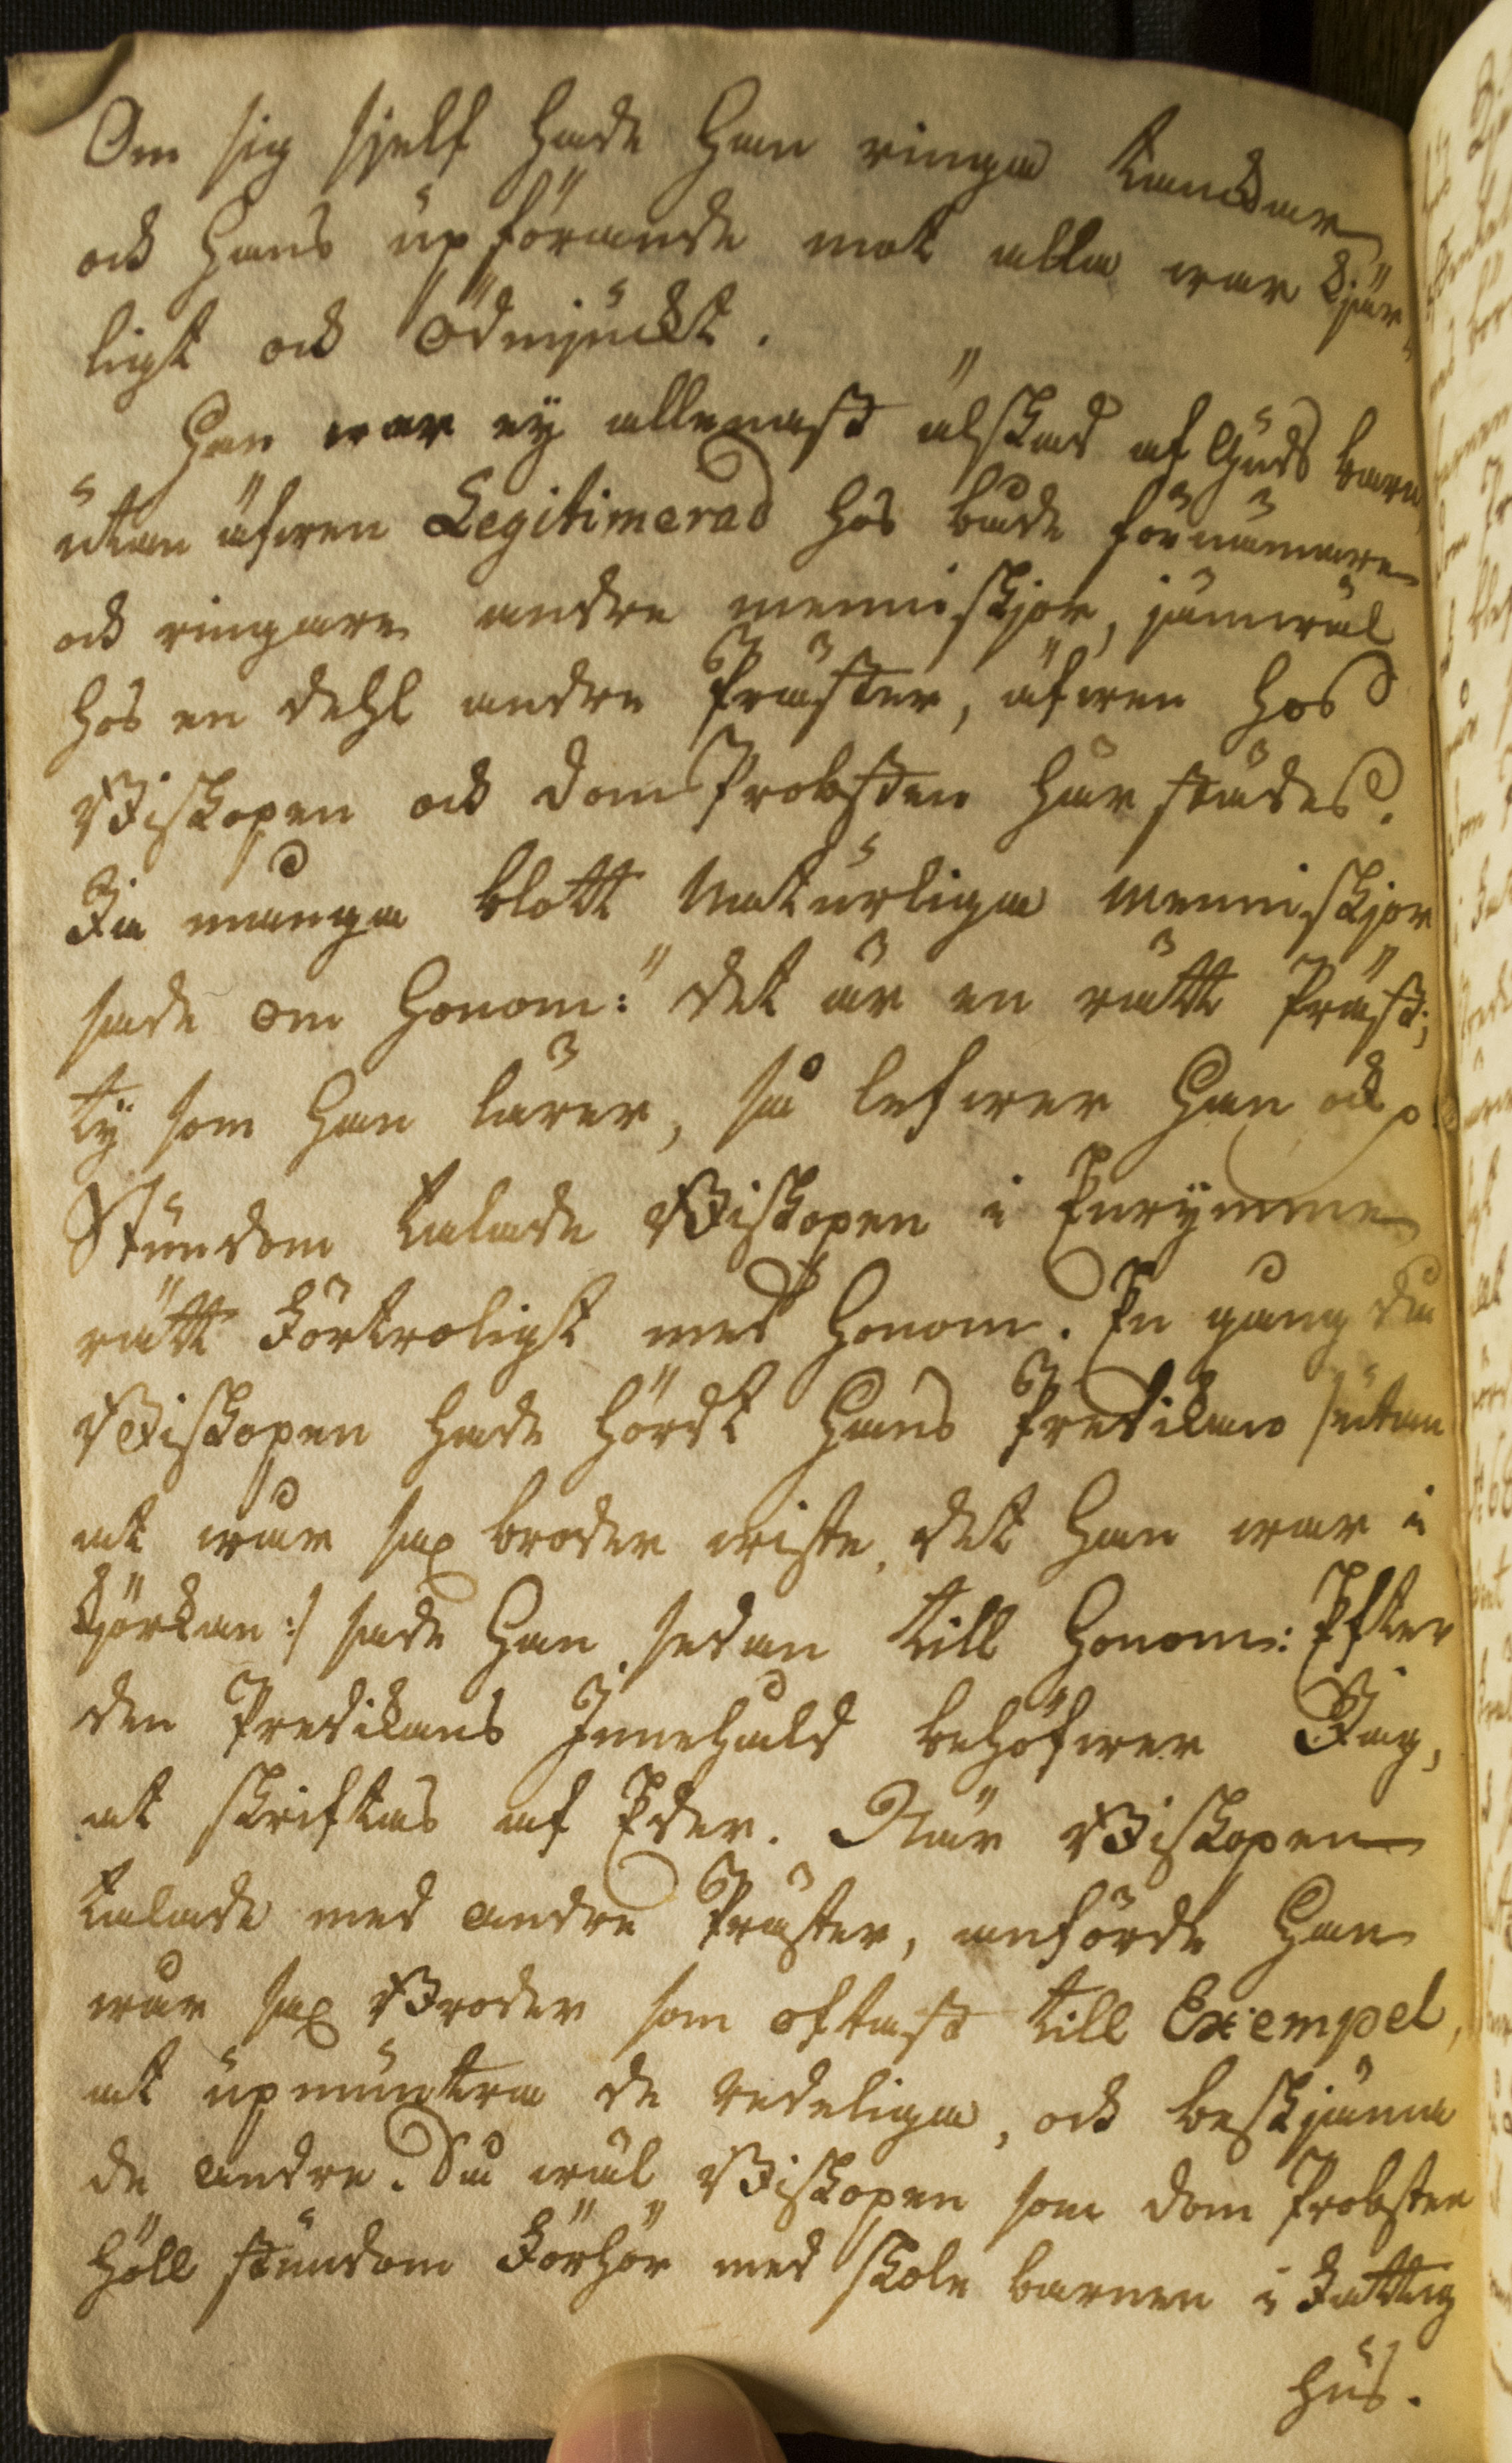 Om sig sjelf hade Han ringa tanckar
ock Hans upförande mot alla war kjär-
ligt ock ödmjuckt.
Han war ej allenast älskad af Guds barn
utan äfwen Legitimerad hos både förnämare
ock ringare andre menniskjor, jämwäl
hos en dehl andre Präster, äfwen hos
Biskopen ock domProbsten härstädes.
Ja många blott naturliga menniskjor
sade om Honom: "det är en rätt Präst;
ty som Han lärer, så lefwer Han ock"
Stundom talade Biskopen i Enrymme
rätt Förtroligt med Honom. En gång då
Biskopen hade hördt Hans Predikan /:utan
at wår sal broder wiste, det Han war i
kjörkan:/ sade Han sedan till Honom: Efter
den Predikans Innehåld behöfwer Jag,
at skriftas af Eder. När Biskopen
talade med andre Präster, anförde Han
wår sal Broder som oftast till Exempel,
at upmuntra de redeliga, ock beskjäma
de andre. Så wäl Biskopen som dom Probsten
höll stundom Förhör med skole barnen i Fattig
hus.